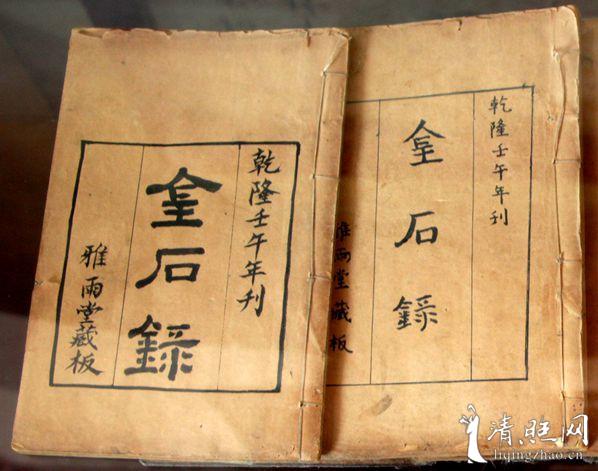 乾隆壬午年刊
金石錄
雅雨堂藏板
乾隆壬午年刊
金石錄
雅雨堂藏板
清照网
liqingzhao.cn